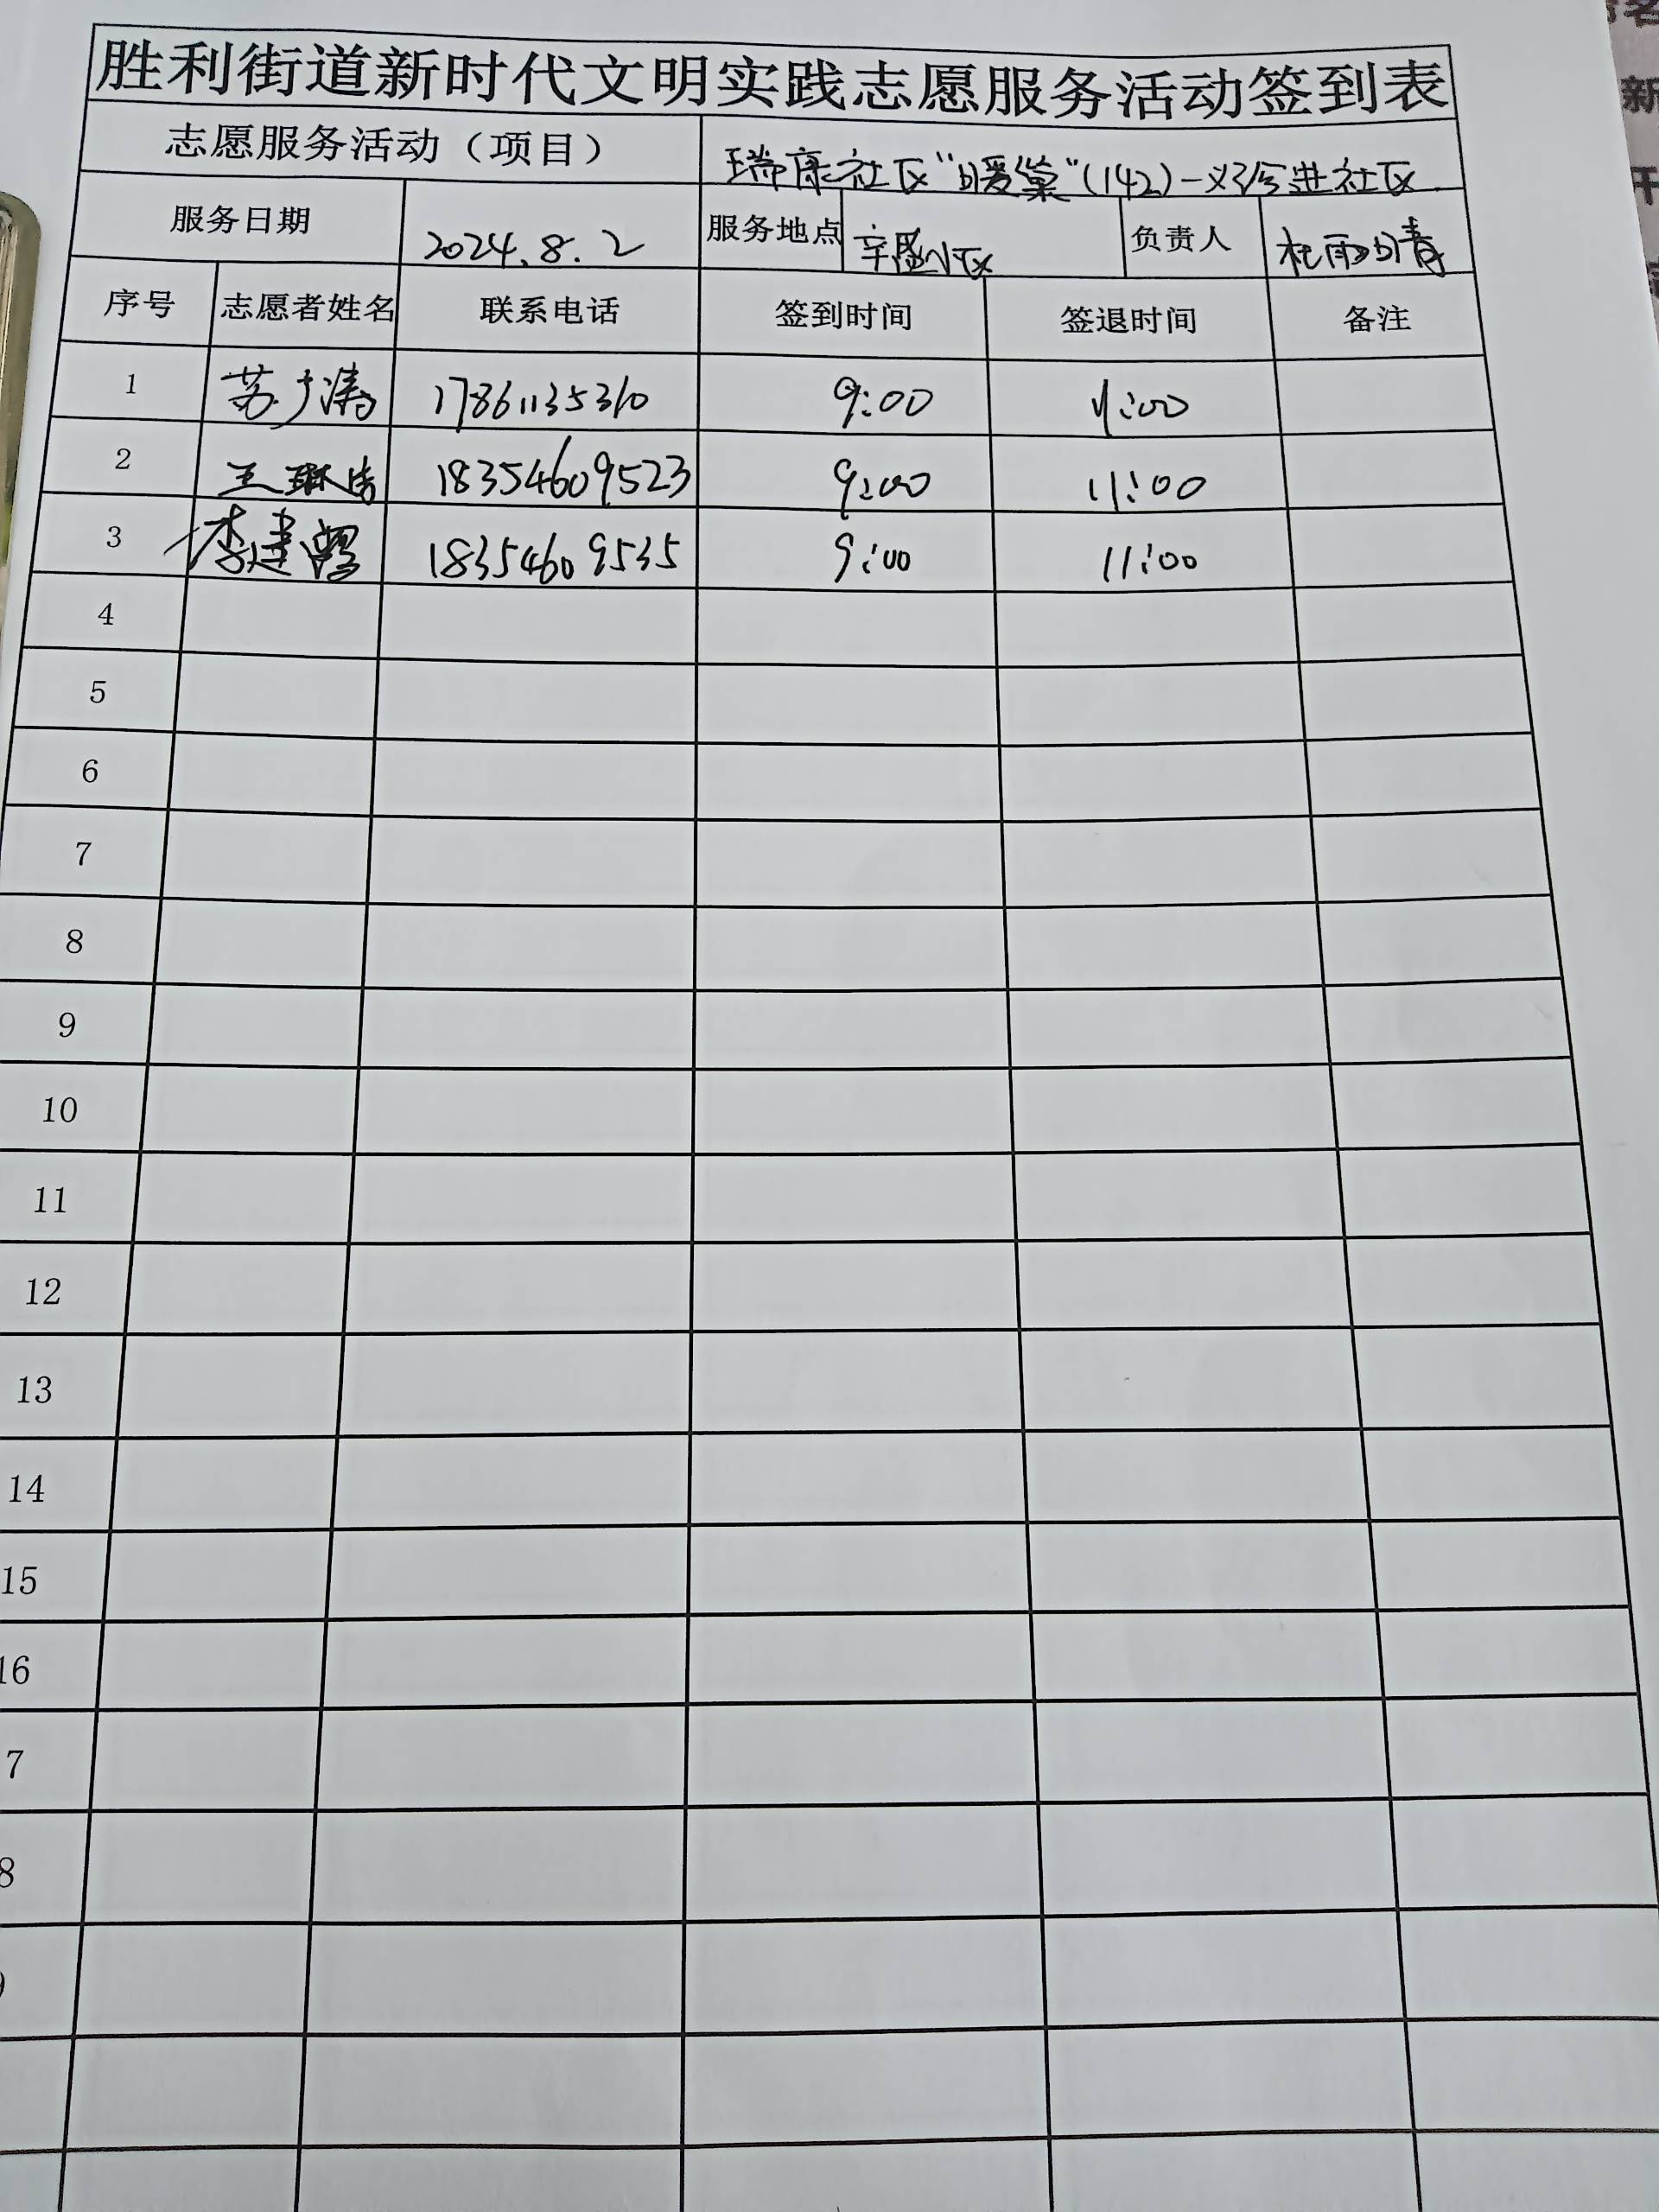 胜利街道新时代文明实践志愿服务活动签到表
志愿服务活动（项目） 瑞康社区“暖巢”(142)-义诊进社区
服务日期 2024.8.2 服务地点 辛盛小区 负责人 杜雨晴
序号 志愿者姓名 联系电话 签到时间 签退时间 备注
1 苏广涛 17861135310 9:00 11:00
2 王琳 18354609523 9:00 11:00
3 李建 18354609535 9:00 11:00
4
5
6
7
8
9
10
11
12
13
14
15
16
7
8